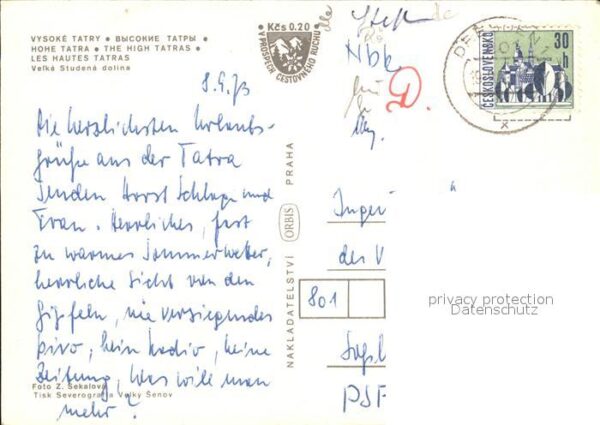 VYSOKÉ TATRY • ВЫСОКИЕ ТАТРЫ •
HOHE TATRA • THE HIGH TATRAS •
LES HAUTES TATRAS
Velká Studená dolina
8.9.73
Die herzlichsten Urlaubs-
grüße aus der Tatra
senden Horst Schlage und
Frau. Herrliches, fast
zu warmes Sommerwetter,
herrliche Sicht von den
Gipfeln, nie versiegendes
Pivo, kein Radio, keine
Zeitung, was will man
mehr?
Foto Z. Sekalová
Tisk Severografia Velký Šenov
Kčs 0.20
V PROSPĚCH CESTOVNÉHO RUCHU
NAKLADATELSTVÍ ORBIS PRAHA
Nbk
D.
ČESKOSLOVENSKO
30
h
Ingen
des V
801
privacy protection
Datenschutz
PSF